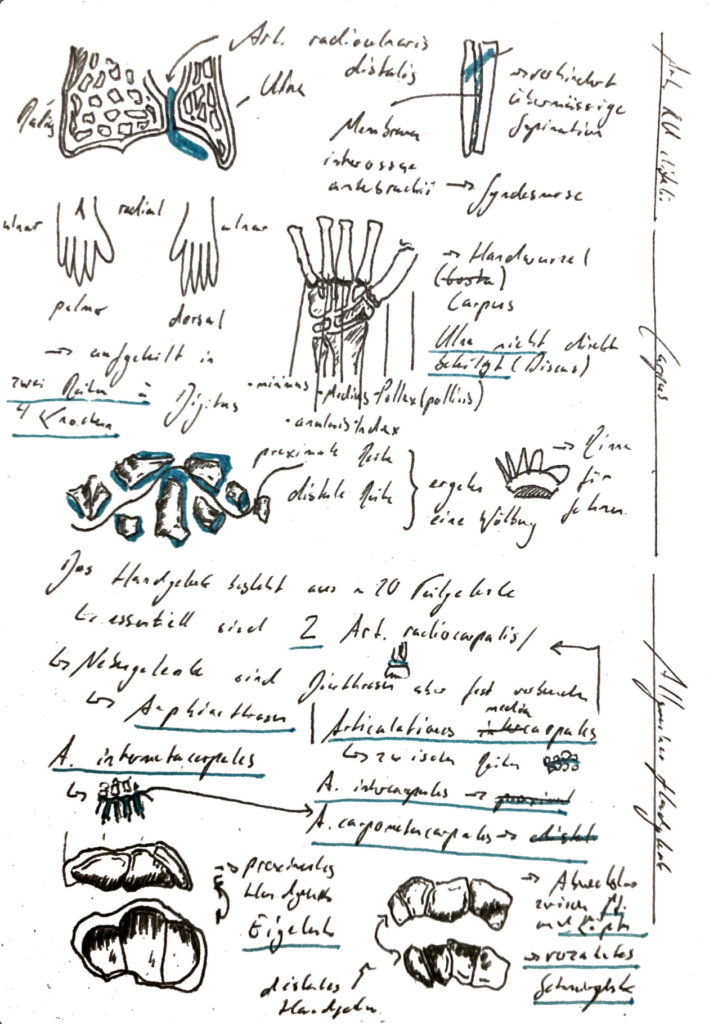 Art. radioulnaris
distalis
Ulna
Radius
Membrana
interossea
antebrachii → Syndesmose
→ verhindert
übermässige
Supination
Art. RU distalis
ulnar
radial
ulnar
palmar
dorsal
→ aufgeteilt in
zwei Reihen à
4 Knochen
Digitus
• minimus
• anularis
• Medius
• Index
• Pollux (pollicis)
→ Handwurzel
Carpus
Ulna nicht direkt
beteiligt (Discus)
Carpus
proximale Reihe
distale Reihe
ergeben
eine Wölbung
→ Rinne
für
Sehnen
Das Handgelenk besteht aus ~ 20 Teilgelenke
essentiell sind 2 Art. radiocarpalis/
↳ Nebengelenke sind Diarthrosen aber fest verbunden
↳ Amphiarthrosen
media
Articulationes carpales
↳ zwischen Reihen
A. intermetacarpales
↳
A. intercarpales →
A. carpometacarpales →
Allgemeines Handgelenk
→ proximales
Handgelenk
Eigelenk
distales ↑
Handgelenk
→ Abwechslung
zwischen
→ verzahntes
Scharniergelenk